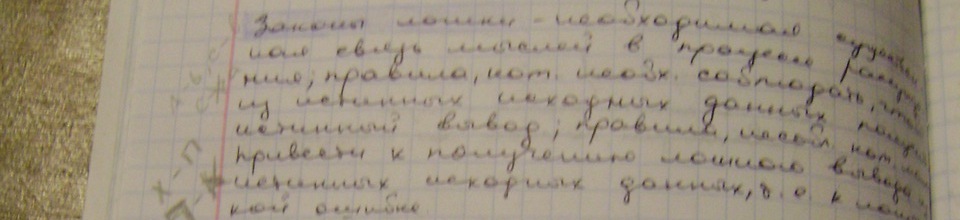 Законы логики - необходимая существен
ная связь мыслей в процессе рассужде
ния; правила, кот. необх. соблюдать, чтобы
из истинных исходных данных получить
истинный вывод; правила, несобл. кот. может
привести к получению ложного вывода из
истинных исходных данных, т. е. к логи
кой ошибке